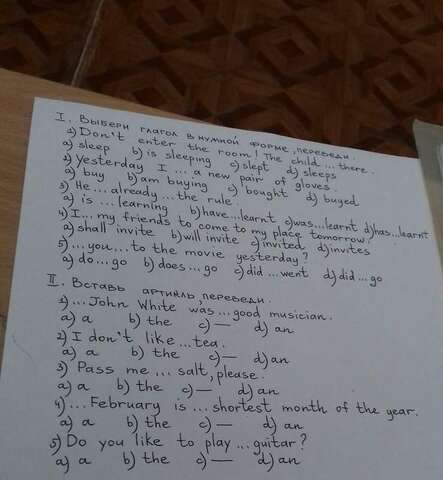 I. Выбери глагол в нужной форме, переведи.
1) Don't enter the room! The child ... there.
a) sleep b) is sleeping c) slept d) sleeps
2) Yesterday I ... a new pair of gloves.
a) buy b) am buying c) bought d) buyed
3) He ... already ... the rule.
a) is ... learning b) have ... learnt c) was ... learnt d) has ... learnt
4) I ... my friends to come to my place tomorrow.
a) shall invite b) will invite c) invited d) invites
5) ... you ... to the movie yesterday?
a) do ... go b) does ... go c) did ... went d) did ... go
II. Вставь артикль, переведи.
1) ... John White was ... good musician.
a) a b) the c) — d) an
2) I don't like ... tea.
a) a b) the c) — d) an
3) Pass me ... salt, please.
a) a b) the c) — d) an
4) ... February is ... shortest month of the year.
a) a b) the c) — d) an
5) Do you like to play ... guitar?
a) a b) the c) — d) an